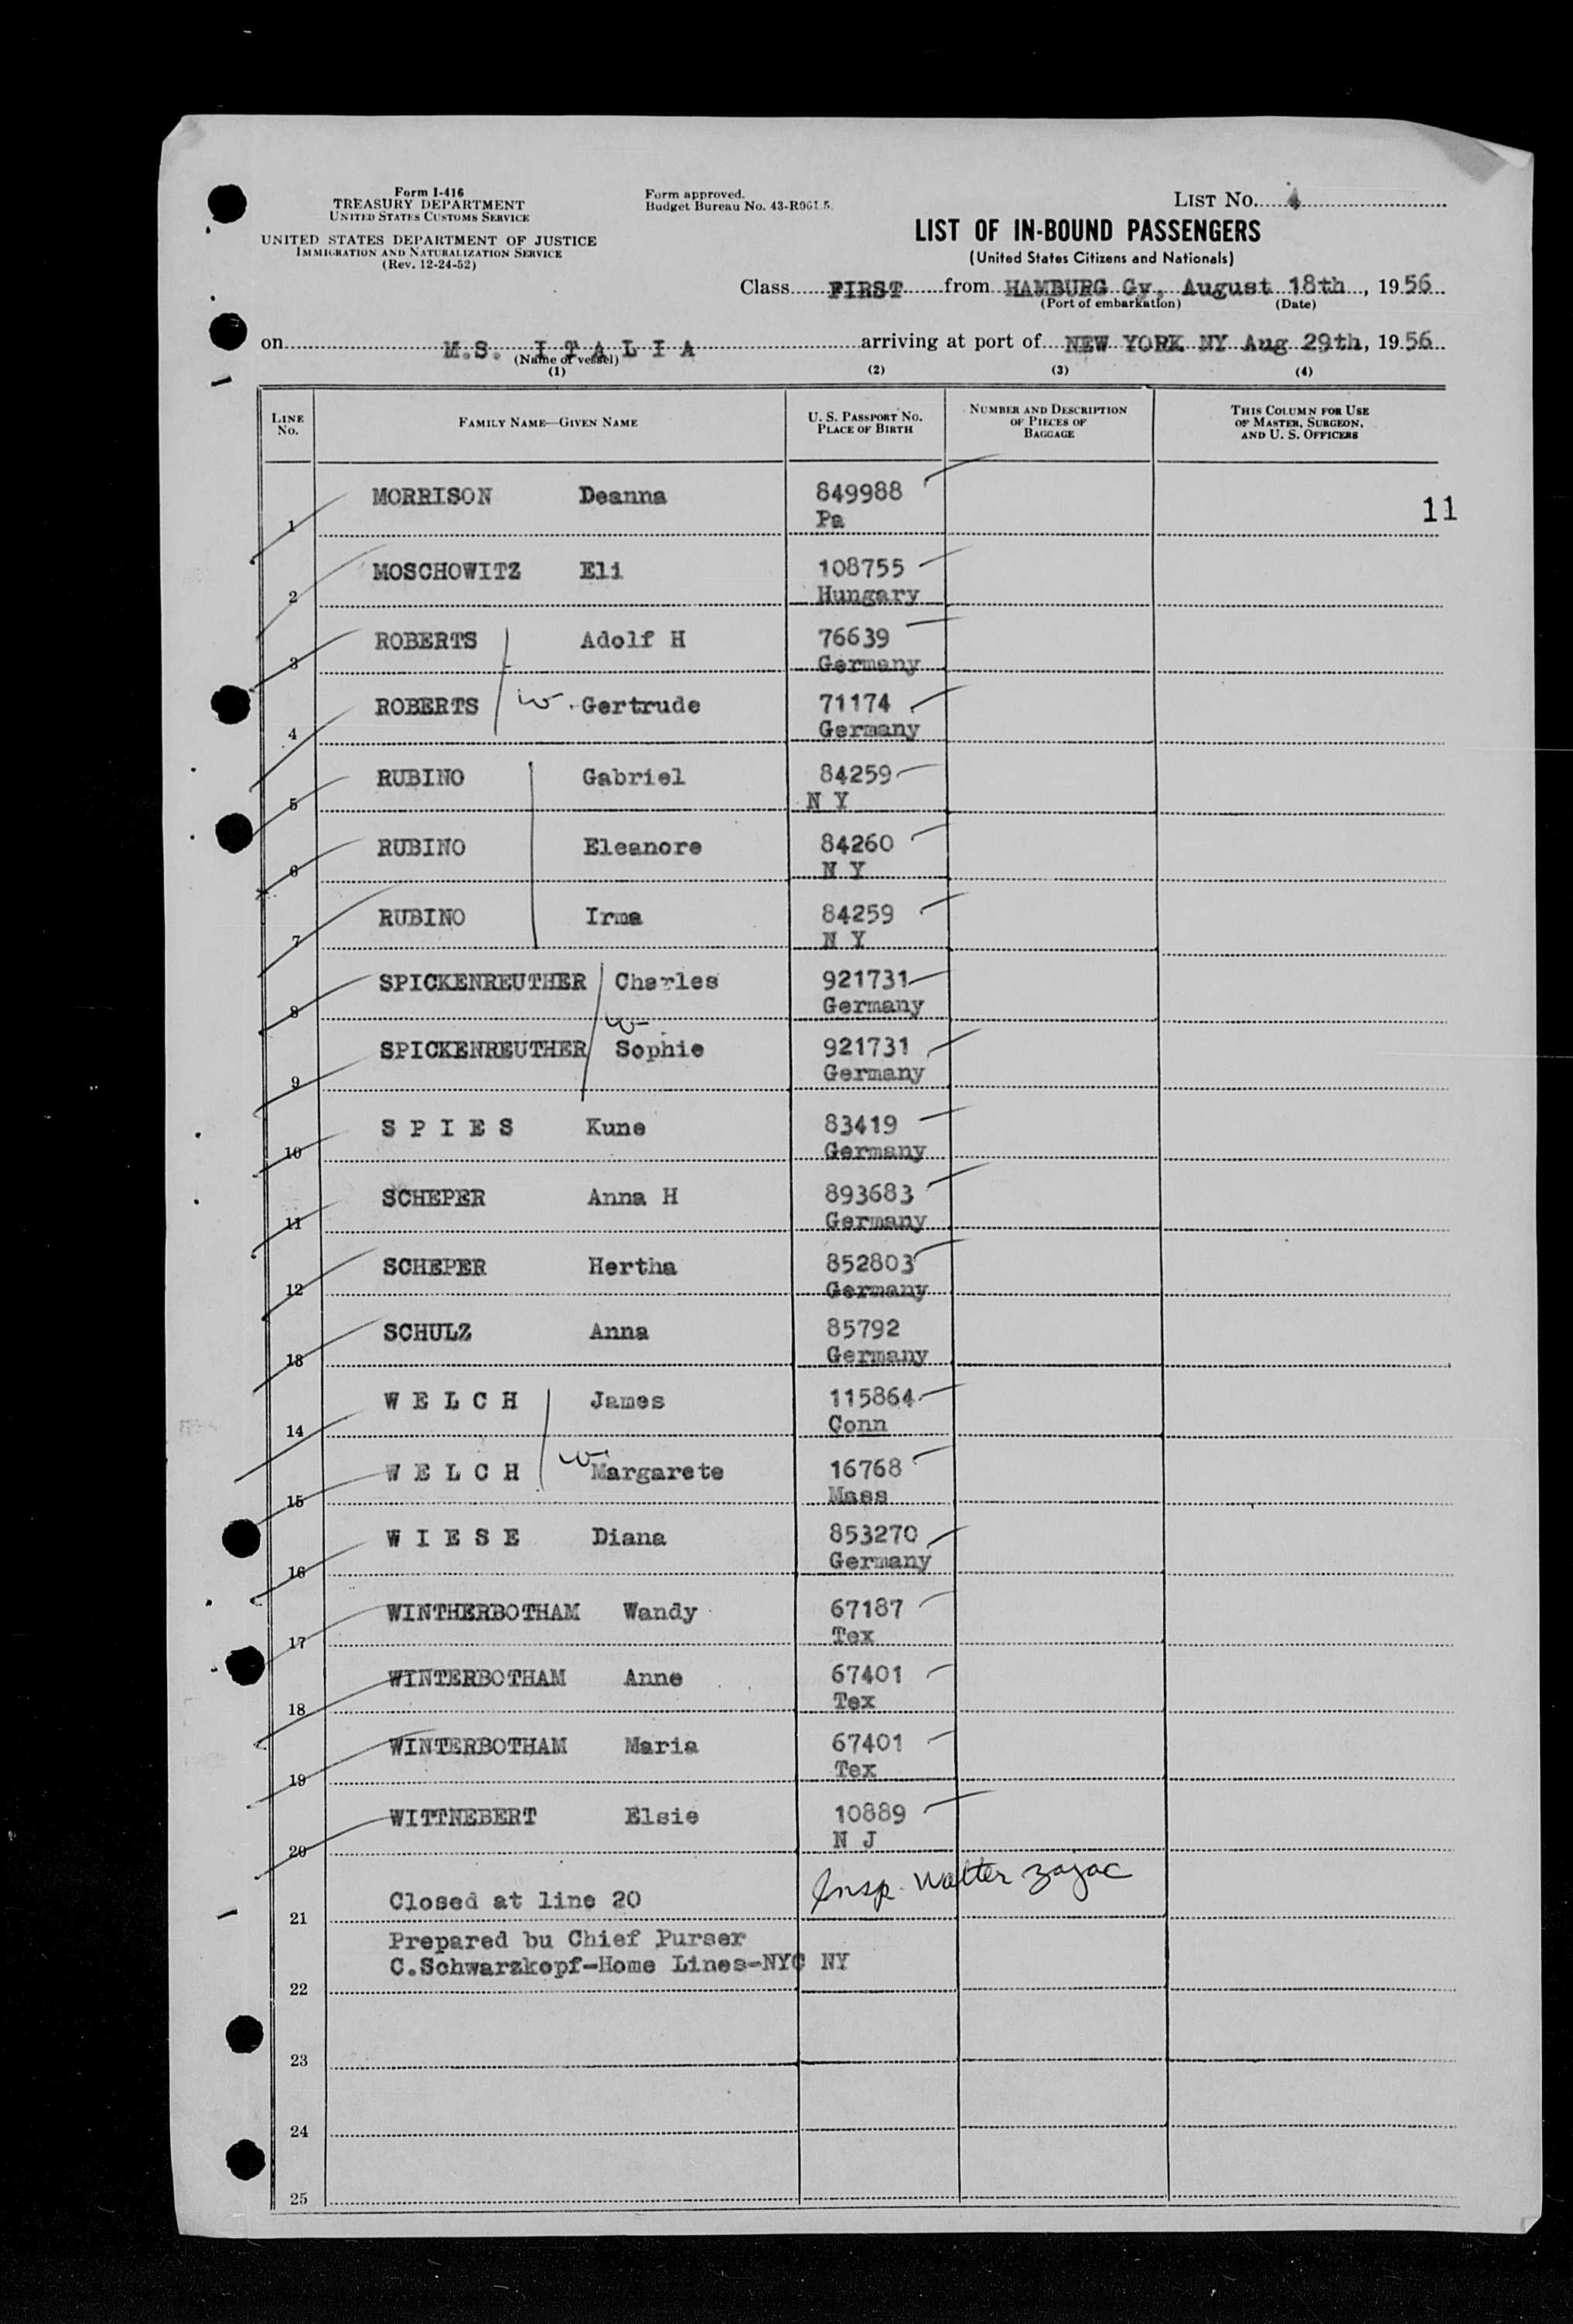 Form I-416
TREASURY DEPARTMENT
UNITED STATES CUSTOMS SERVICE
UNITED STATES DEPARTMENT OF JUSTICE
IMMIGRATION AND NATURALIZATION SERVICE
(Rev. 12-24-52)
Form approved.
Budget Bureau No. 43-R061.5.
LIST No. 4
LIST OF IN-BOUND PASSENGERS
(United States Citizens and Nationals)
Class FIRST from HAMBURG Gy, August 18th, 1956
(Port of embarkation) (Date)
on M.S. I T A L I A arriving at port of NEW YORK NY Aug 29th, 1956
(Name of vessel)
(1) (2) (3) (4)
LINE No. FAMILY NAME—GIVEN NAME U. S. PASSPORT NO. PLACE OF BIRTH NUMBER AND DESCRIPTION OF PIECES OF BAGGAGE THIS COLUMN FOR USE OF MASTER, SURGEON, AND U. S. OFFICERS
1 MORRISON Deanna 849988 11
Pa
2 MOSCHOWITZ Eli 108755
Hungary
3 ROBERTS Adolf H 76639
Germany
4 ROBERTS w. Gertrude 71174
Germany
5 RUBINO Gabriel 84259
N Y
6 RUBINO Eleanore 84260
N Y
7 RUBINO Irma 84259
N Y
8 SPICKENREUTHER Charles 921731
Germany
w
9 SPICKENREUTHER Sophie 921731
Germany
10 S P I E S Kune 83419
Germany
11 SCHEPER Anna H 893683
Germany
12 SCHEPER Hertha 852803
Germany
13 SCHULZ Anna 85792
Germany
14 W E L C H James 115864
Conn
15 W E L C H w Margarete 16768
Mass
16 W I E S E Diana 853270
Germany
17 WINTHERBOTHAM Wandy 67187
Tex
18 WINTERBOTHAM Anne 67401
Tex
19 WINTERBOTHAM Maria 67401
Tex
20 WITTNEBERT Elsie 10889
N J
Insp. Walter Zajac
21 Closed at line 20
Prepared bu Chief Purser
22 C.Schwarzkopf-Home Lines-NYC NY
23
24
25